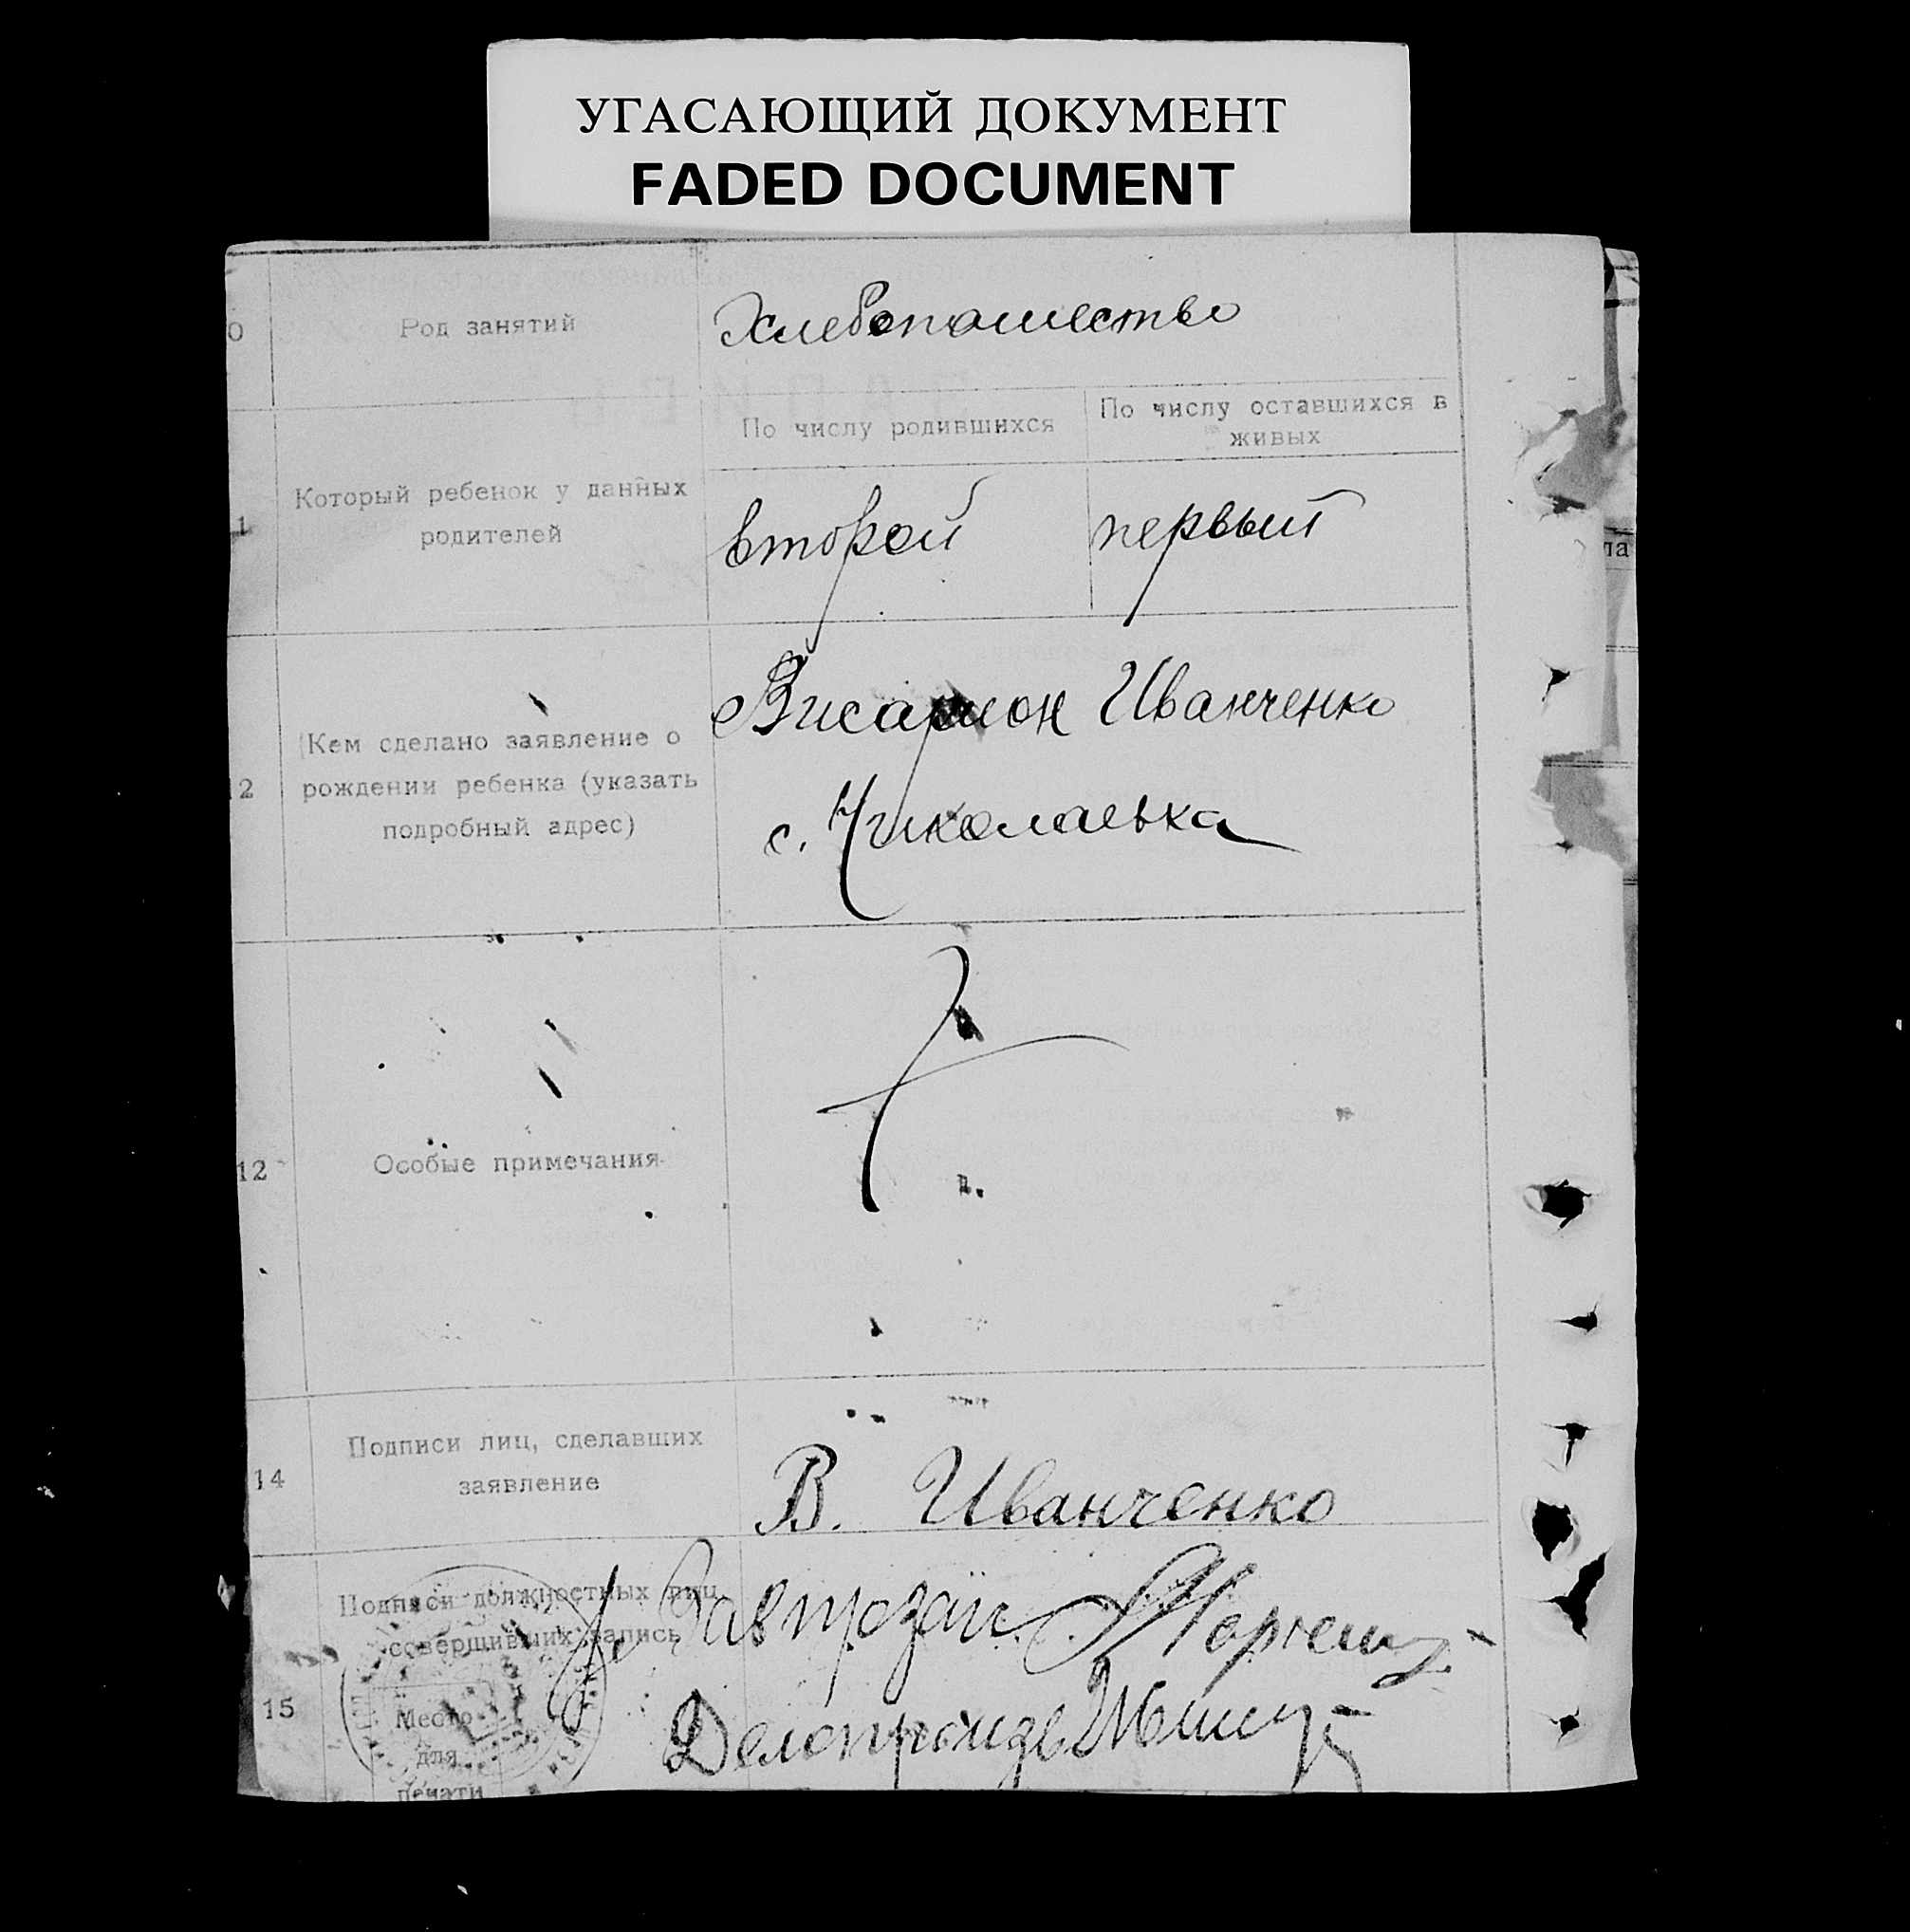 УГАСАЮЩИЙ ДОКУМЕНТ
FADED DOCUMENT
0 Род занятий Хлебопашество
По числу родившихся По числу оставшихся в
живых
1 Который ребенок у данных
родителей второй первый
Висарион Иванченко
Кем сделано заявление о
2 рождении ребенка (указать
подробный адрес) с. Николаевка
12 Особые примечания
14 Подписи лиц, сделавших
заявление В. Иванченко
Подписи должностных лиц
совершивших запись
15 Место
для
печати
Делопроизв
ла